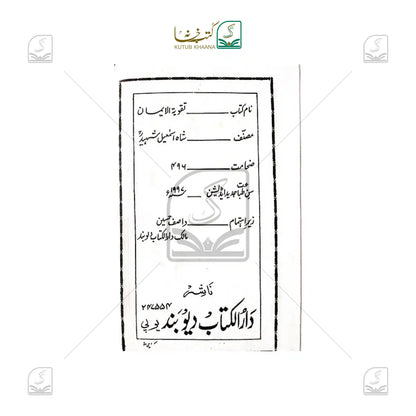 کتب خانہ
KUTUB KHAANA
نام کتاب ــــــ تقویۃ الایمان
مصنف ــــــ شاہ اسمٰعیل شہیدؒ
ضخامت ــــــ ۴۹۶
سن طباعت جدید ایڈیشن ــــــ ۱۹۹۷ء
زیر اہتمام ــــــ واصف حسین
مالک دارالکتاب دیوبند
ناشر
دارُ الکتاب دیوبند یوپی ۲۴۷۵۵۴